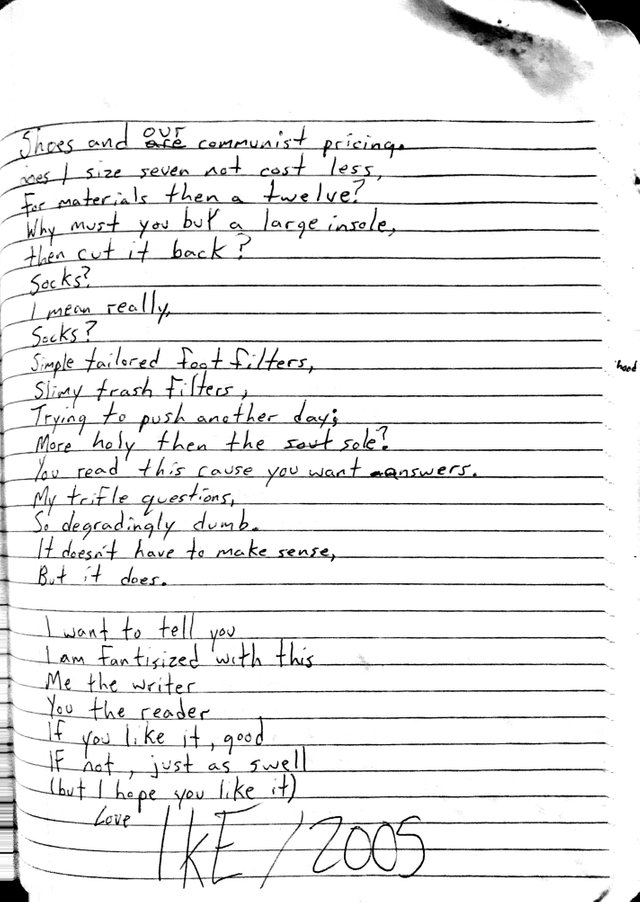 Shoes and our are communist pricing.
I size seven not cost less,
For materials then a twelve?
Why must you buy a large insole,
then cut it back?
Socks?
I mean really,
Socks?
Simple tailored foot filters,
Slimy trash filters,
Trying to push another day;
More holy then the sole?
You read this cause you want answers.
My trifle questions,
So degradingly dumb.
It doesn't have to make sense,
But it does.
I want to tell you
I am fantisized with this
Me the writer
You the reader
If you like it, good
If not, just as swell
(but I hope you like it)
Love
IKE/2005
hood